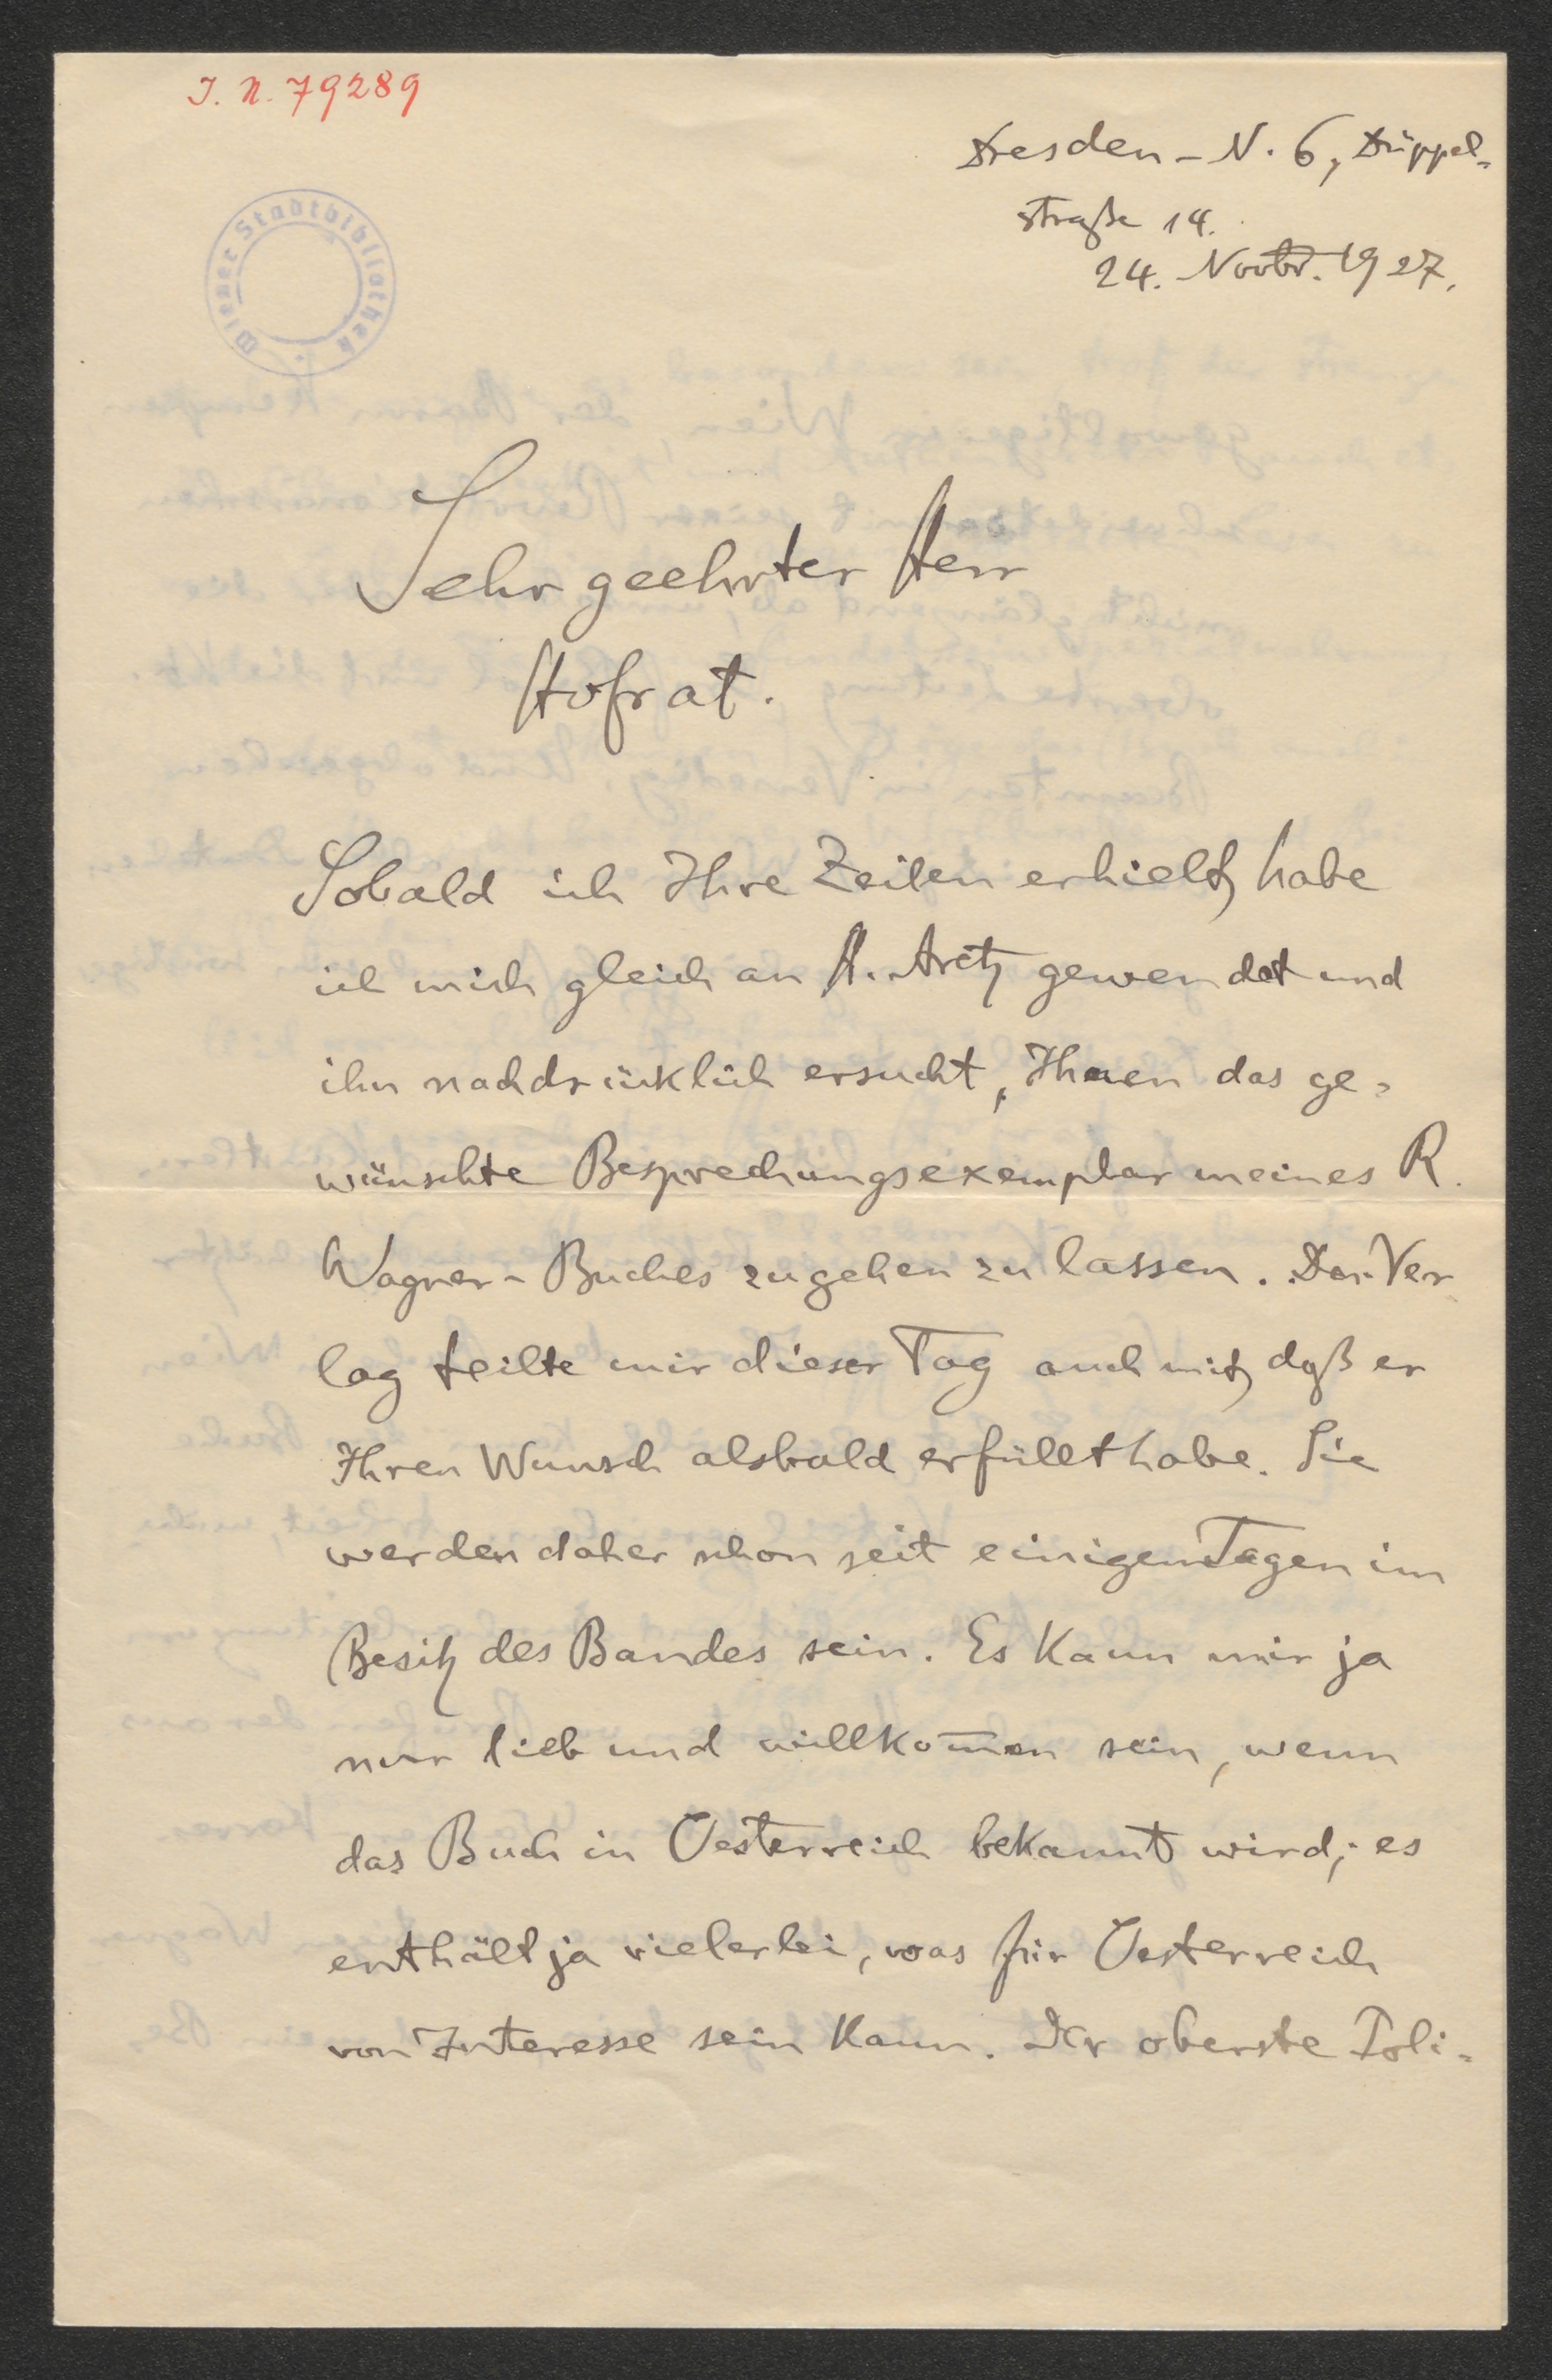 I. N. 79289
Dresden-N. 6, Düppel-
straße 14.
24. Novbr. 1927.
Wiener Stadtbibliothek
Sehr geehrter Herr
Hofrat.
Sobald ich Ihre Zeilen erhielt, habe
ich mich gleich an H. Aretz gewendet und
ihn nachdrücklich ersucht, Ihnen das ge-
wünschte Besprechungsexemplar meines R.
Wagner-Buches zugehen zu lassen. Der Ver-
lag teilte mir dieser Tag auch mit, daß er
Ihren Wunsch alsbald erfüllt habe. Sie
werden daher schon seit einigen Tagen im
Besitz des Bandes sein. Es kann mir ja
nur lieb und willkom̅en sein, wenn
das Buch in Oesterreich bekannt wird; es
enthält ja vielerlei, was für Oesterreich
von Interesse sein kann. Der oberste Poli-